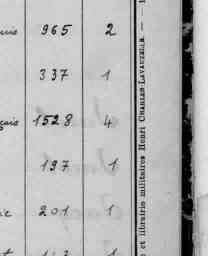 965 2
337 1
1528 4
197 1
201 1
et librairie militaires Henri CHARLES-LAVAUZELLE. —